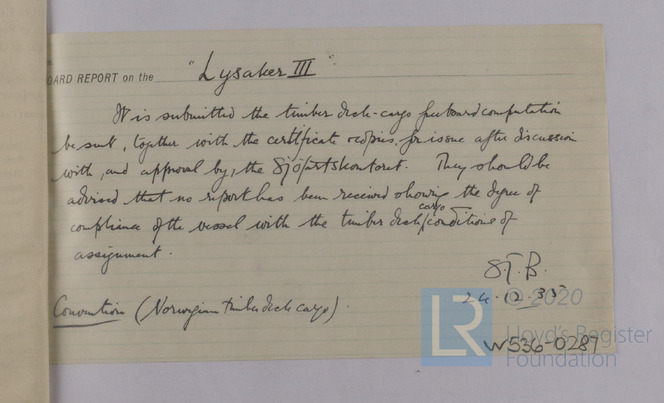 OARD REPORT on the "Lysaker III"
It is submitted the timber deck-cargo freeboard computation
be sent, together with the certificate & copies, for issue after discussion
with, and approval by, the Sjöfartskontoret. They should be
advised that no report has been received showing the degree of
compliance of the vessel with the timber deck/cargo conditions of
assignment.
S.J.B.
24.12.35
Convention (Norwegian timber deck cargo).
© 2020
LR
Lloyd's Register
Foundation
W536-0287